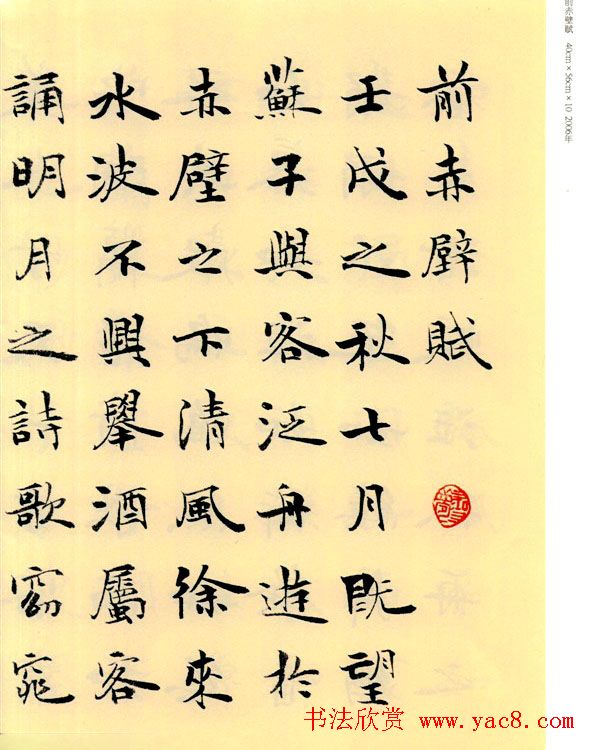 前赤壁賦
壬戌之秋七月既望
蘇子與客泛舟遊於
赤壁之下清風徐來
水波不興舉酒屬客
誦明月之詩歌窈窕
前赤壁賦 40cm×56cm×10 2006年
书法欣赏 www.yac8.com